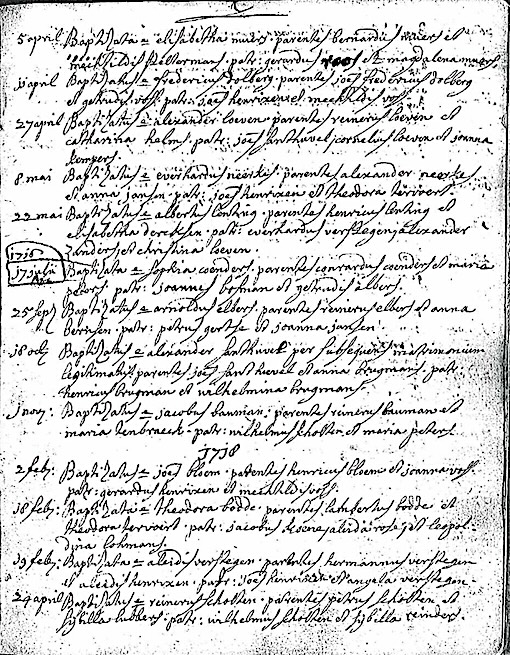 5 april Baptizata e elisabetha muers. parentes bernardus muers et
mechtildis kellerman. patr: gerardus et magdalena muers
11 april Baptizatus e fredericus dolberg. parentes joes fredericus dolberg
et getrudis voss. patr: joes henrixen et mechtildis voss.
27 april Baptizatus e alexander loeven. parentes reinerus loeven et
catharina halm. patr: joes santhuvel cornelius loeven et joanna
kempers.
8 mai Baptizatus e everhardus neerkes. parentes alexander neerkes
et anna jansen. patr: joes henrixen et theodora
22 mai Baptizatus e albertus lenting. parentes henricus lenting et
elisabetha dercksen. patr: everhardus verstegen alexander
sanders et christina loeven.
1716
17 junii Baptizata e sophia coenders. parentes conrardus coenders et maria
peters. patr: joannes besman et getrudis elbers.
25 sept Baptizatus e arnoldus elbers. parentes reinerus elbers et anna
berntsen. patr: petrus gertse et joanna jansen.
18 octb Baptizatus e alexander santhuvel per subsequens matrimonium
legitimatus parentes joes santhuvel et anna brugmans. patr:
henricus brugman et wilhelmina brugmans.
1 nov: Baptizatus e jacobus bauman. parentes reinerus bauman et
maria tenbraeck. patr: wilhelmus scholten et maria peters.
1718
2 feb: Baptizatus e joes bloem. parentes henricus bloem et joanna voss.
patr: gerardus henrixen et mechtildis voss.
18 feb: Baptizata e theodora bodde. parentes lambertus bodde et
theodora tervoert. patr: jacobus et leopol-
dina lohmans.
19 feb: Baptizatus e aleidis verstegen. parentes hermannus verstegen
et aleidis henrixen. patr: joes henrixen et angela verstegen
24 april Baptizatus e reinerus scholten. parentes petrus scholten et
sybilla lubbers. patr: wilhelmus scholten et sybilla reinders.